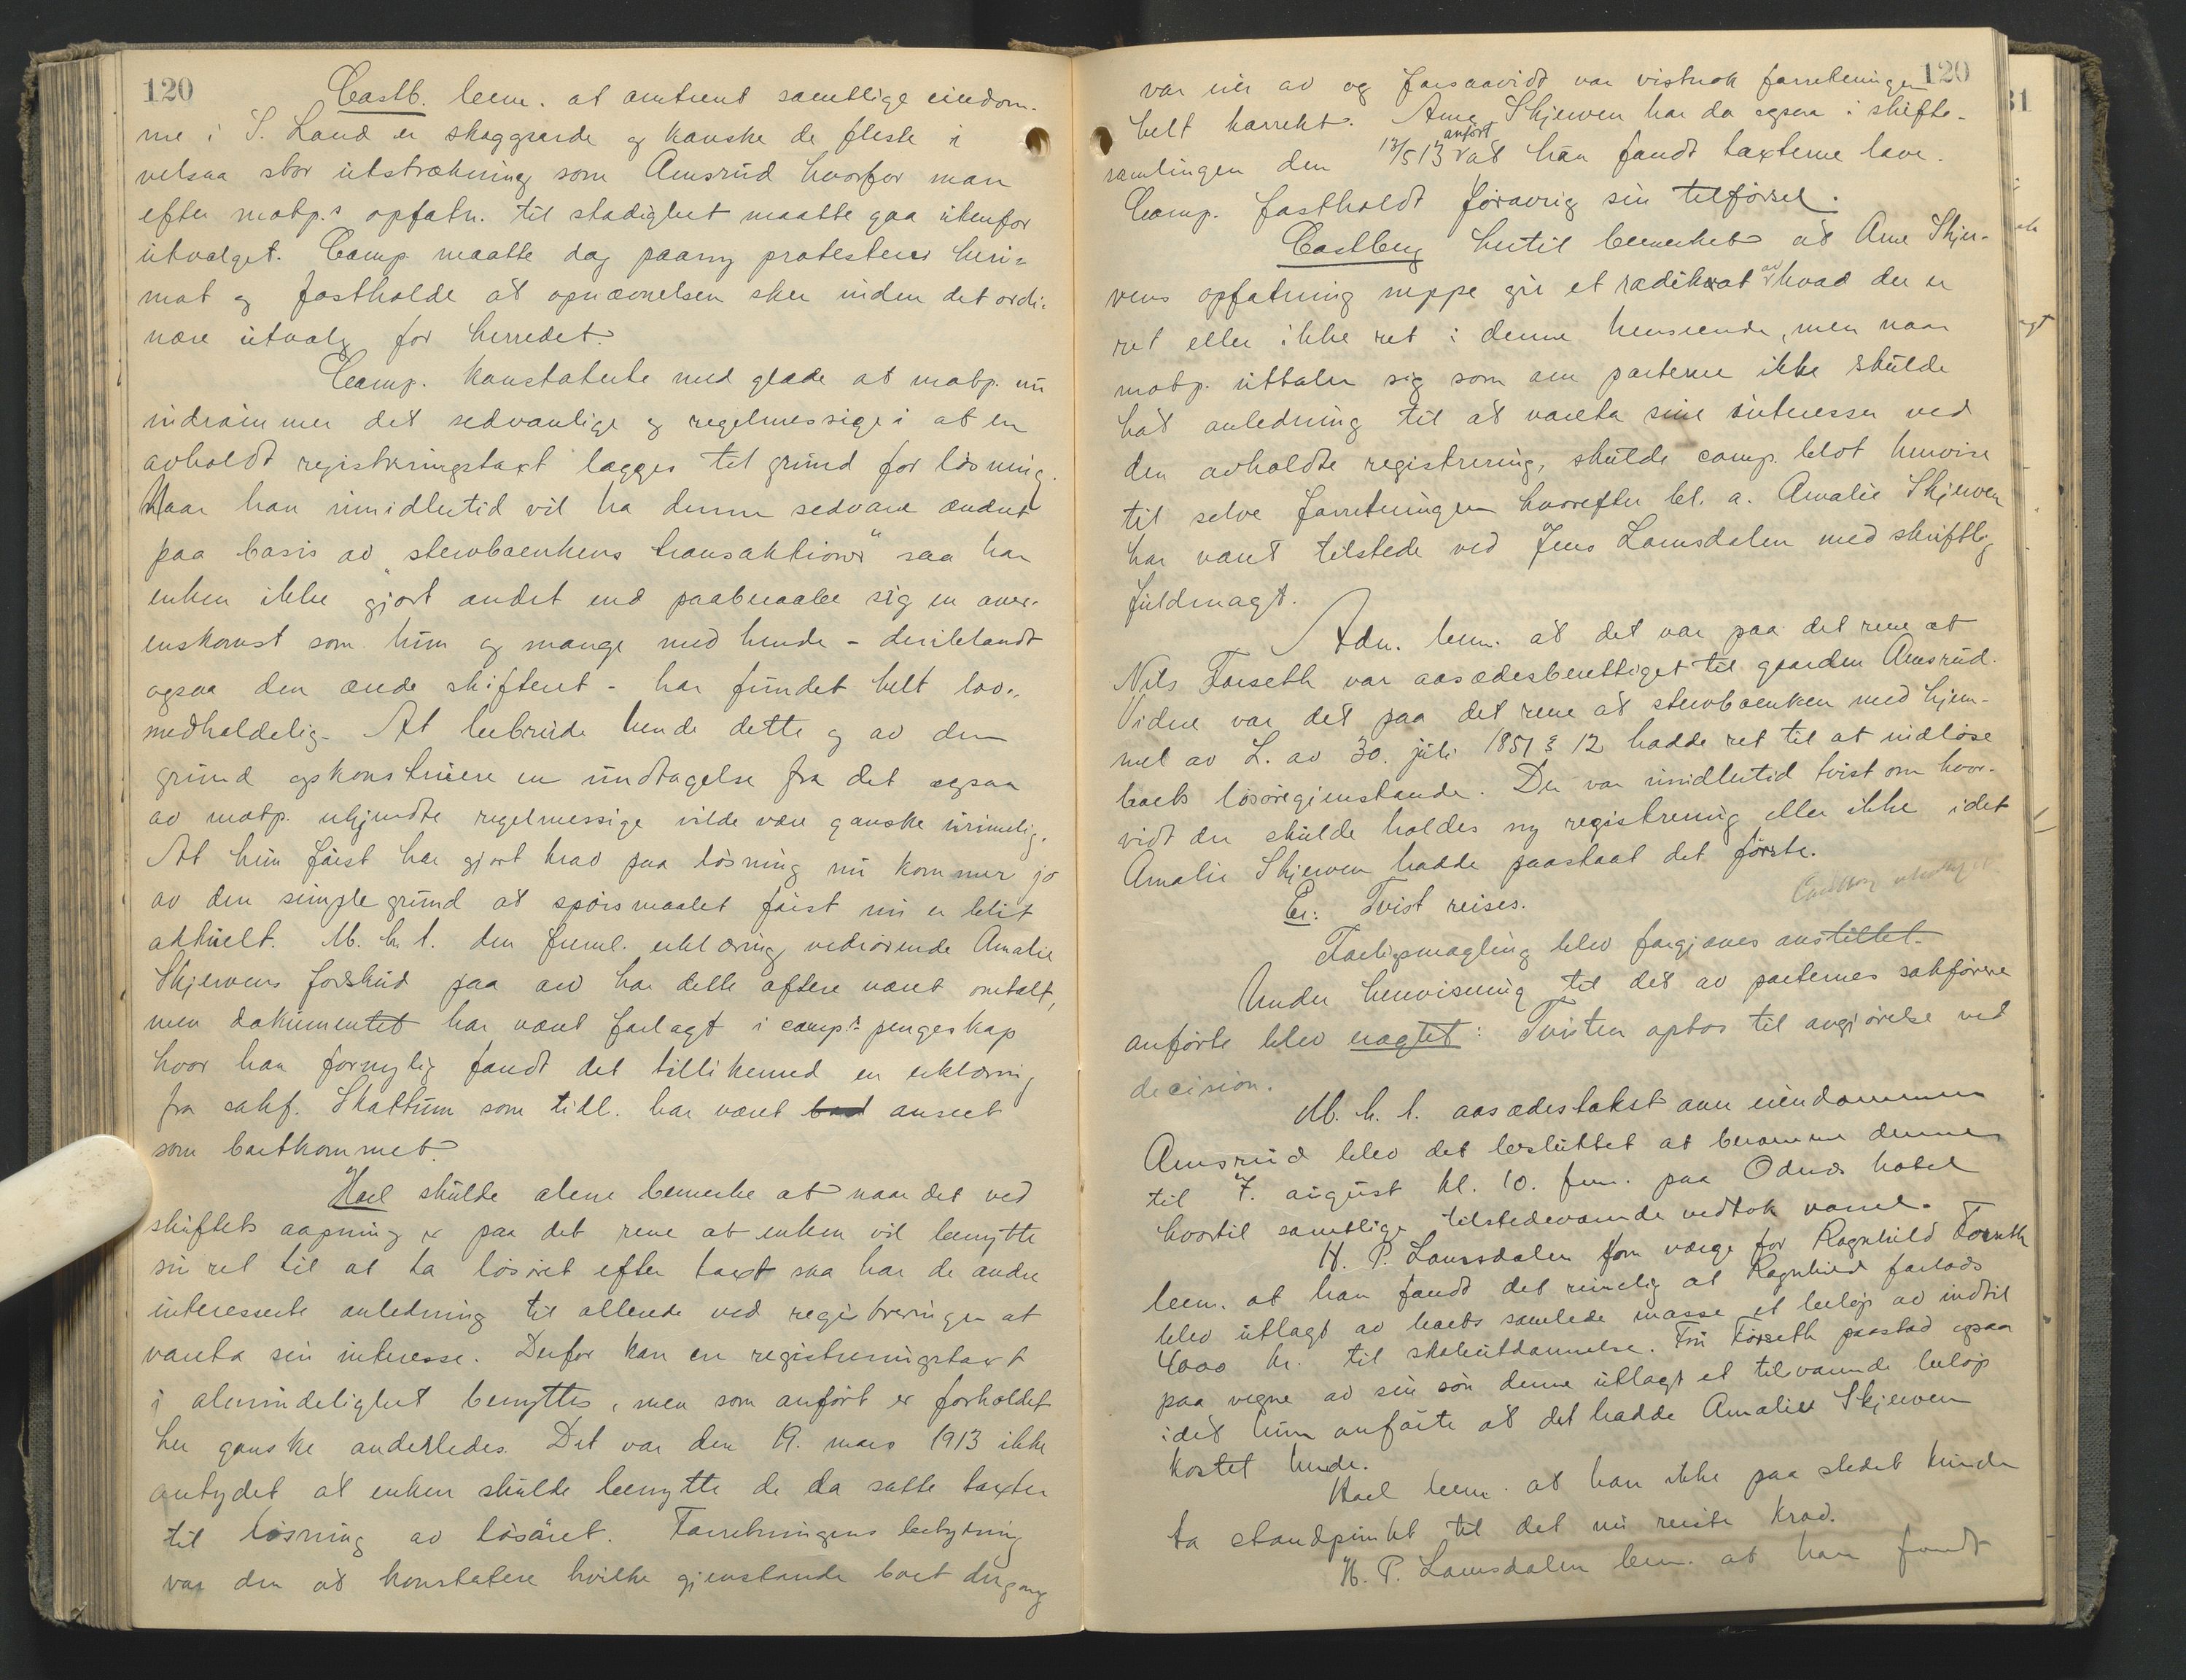 120
Castb. bem. at omtrent samtlige eiendom-
me i S. Land er skoggaarde og kanske de fleste i
velsaa stor utstrækning som Amsrud hvorfor man
efter motp.s opfatn. til stadighet maatte gaa utenfor
utvalget. Comp. maatte dog paany protestere heri-
mot og fastholde at opnævnelsen sker inden det ordi-
nære utvalg for herredet.
Comp. konstaterte med glæde at motp. nu
indrømmer det sedvanlige og regelmessige i at en
avholdt registreringstaxt lægges til grund for løsning.
Naar han imidlertid vil ha denne sedvane ændret
paa basis av "stervboenkens transaktioner" saa har
enken ikke gjort andet end paaberaabe sig en over-
enskomst som hun og mange med hende - deriblandt
ogsaa den ærede skifteret - har fundet helt lov-
medholdelig. At bebreide hende dette og av den
grund opkonstruere en undtagelse fra det ogsaa
av motp. erkjendte regelmessige vilde være ganske urimelig.
At hun først har gjort krav paa løsning nu kommer jo
av den simple grund at spørsmaalet først nu er blit
aktuelt. M. h. t. den freml. erklæring vedrørende Amalie
Skjervens forskud paa arv har dette oftere været omtalt,
men dokumentet har været forlagt i comp.s pengeskap
hvor han fornylig fandt det tillikemed en erklæring
fra sakf. Skattum som tidl. har været anseet
som bortkommet.
Hoel skulde alene bemerke at naar det ved
skiftets aapning er paa det rene at enken vil benytte
sin ret til at ta løsøret efter taxt saa har de andre
interesserte anledning til allerede ved registreringen at
vareta sin interesse. Derfor kan en registreringstaxt
i almindelighet benyttes, men som anført er forholdet
her ganske anderledes. Det var den 19. mars 1913 ikke
antydet at enken skulde benytte de da satte taxter
til løsning av løsøret. Forretningens betydning
var den at konstatere hvilke gjenstande boet dengang
120
var eier av og forsaavidt var vistnok forretningen
helt korrekt. Arne Skjerven har da ogsaa i skifte-
samlingen den 13/5 13 anført at han fandt taxterne lave.
Comp. fastholdt forøvrig sin tilførsel.
Castberg hertil bemerket at Arne Skjer-
vens opfatning neppe gir et radikat av hvad der er
ret eller ikke ret i denne henseende, men naar
motp. uttaler sig som om parterne ikke skulde
hat anledning til at vareta sine interesser ved
den avholdte registrering, skulde comp. blot henvise
til selve forretningen hvorefter bl. a. Amalie Skjerven
har været tilstede ved Jens Lomsdalen med skriftlig
fuldmagt.
Adm. bem. at det var paa det rene at
Nils Forseth var aasædesberettiget til gaarden Amsrud.
Videre var det paa det rene at stervboenken med hjem-
mel av L. av 30. juli 1851 § 12 hadde ret til at indløse
boets løsøregjenstande. Der var imidlertid tvist om hvor-
vidt der skulde holdes ny registrering eller ikke idet
Amalie Skjerven hadde paastaat det første.
Er: Tvist reises.
Forligsmægling blev forgjæves anstillet.
Under henvisning til det av parternes sakførere
anførte blev eragtet: Tvisten optas til avgjørelse ved
decision.
M. h. t. aasædestakst over eiendommen
Amsrud blev det besluttet at beramme denne
til 7. august kl. 10. fm. paa Odnæs hotel
hvortil samtlige tilstedeværende vedtok varsel.
H. P. Lomsdalen som værge for Ragnhild Forseth
bem. at han fandt det rimelig at Ragnhild forlods
blev utlagt av boets samlede masse et beløp av indtil
4000 kr. til skoleutdannelse. Fru Forseth paastod ogsaa
paa vegne av sin søn denne utlagt et tilsvarende beløp
idet hun anførte at det hadde Amalie Skjerven
kostet hende.
Hoel bem. at han ikke paa stedet kunde
ta standpunkt til det nu reiste krav.
H. P. Lomsdalen bem. at han fandt